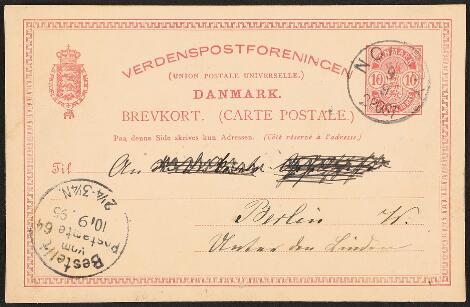 VERDENSPOSTFORENINGEN
(UNION POSTALE UNIVERSELLE.)
DANMARK.
BREVKORT. (CARTE POSTALE.)
Paa denne Side skrives kun Adressen. (Côté réservé à l'adresse.)
DANMARK
10 10
Til An
Berlin W.
Unter den Linden
Bestellt
vom
Postamte 64
10/9.95
2¼-3¼N.